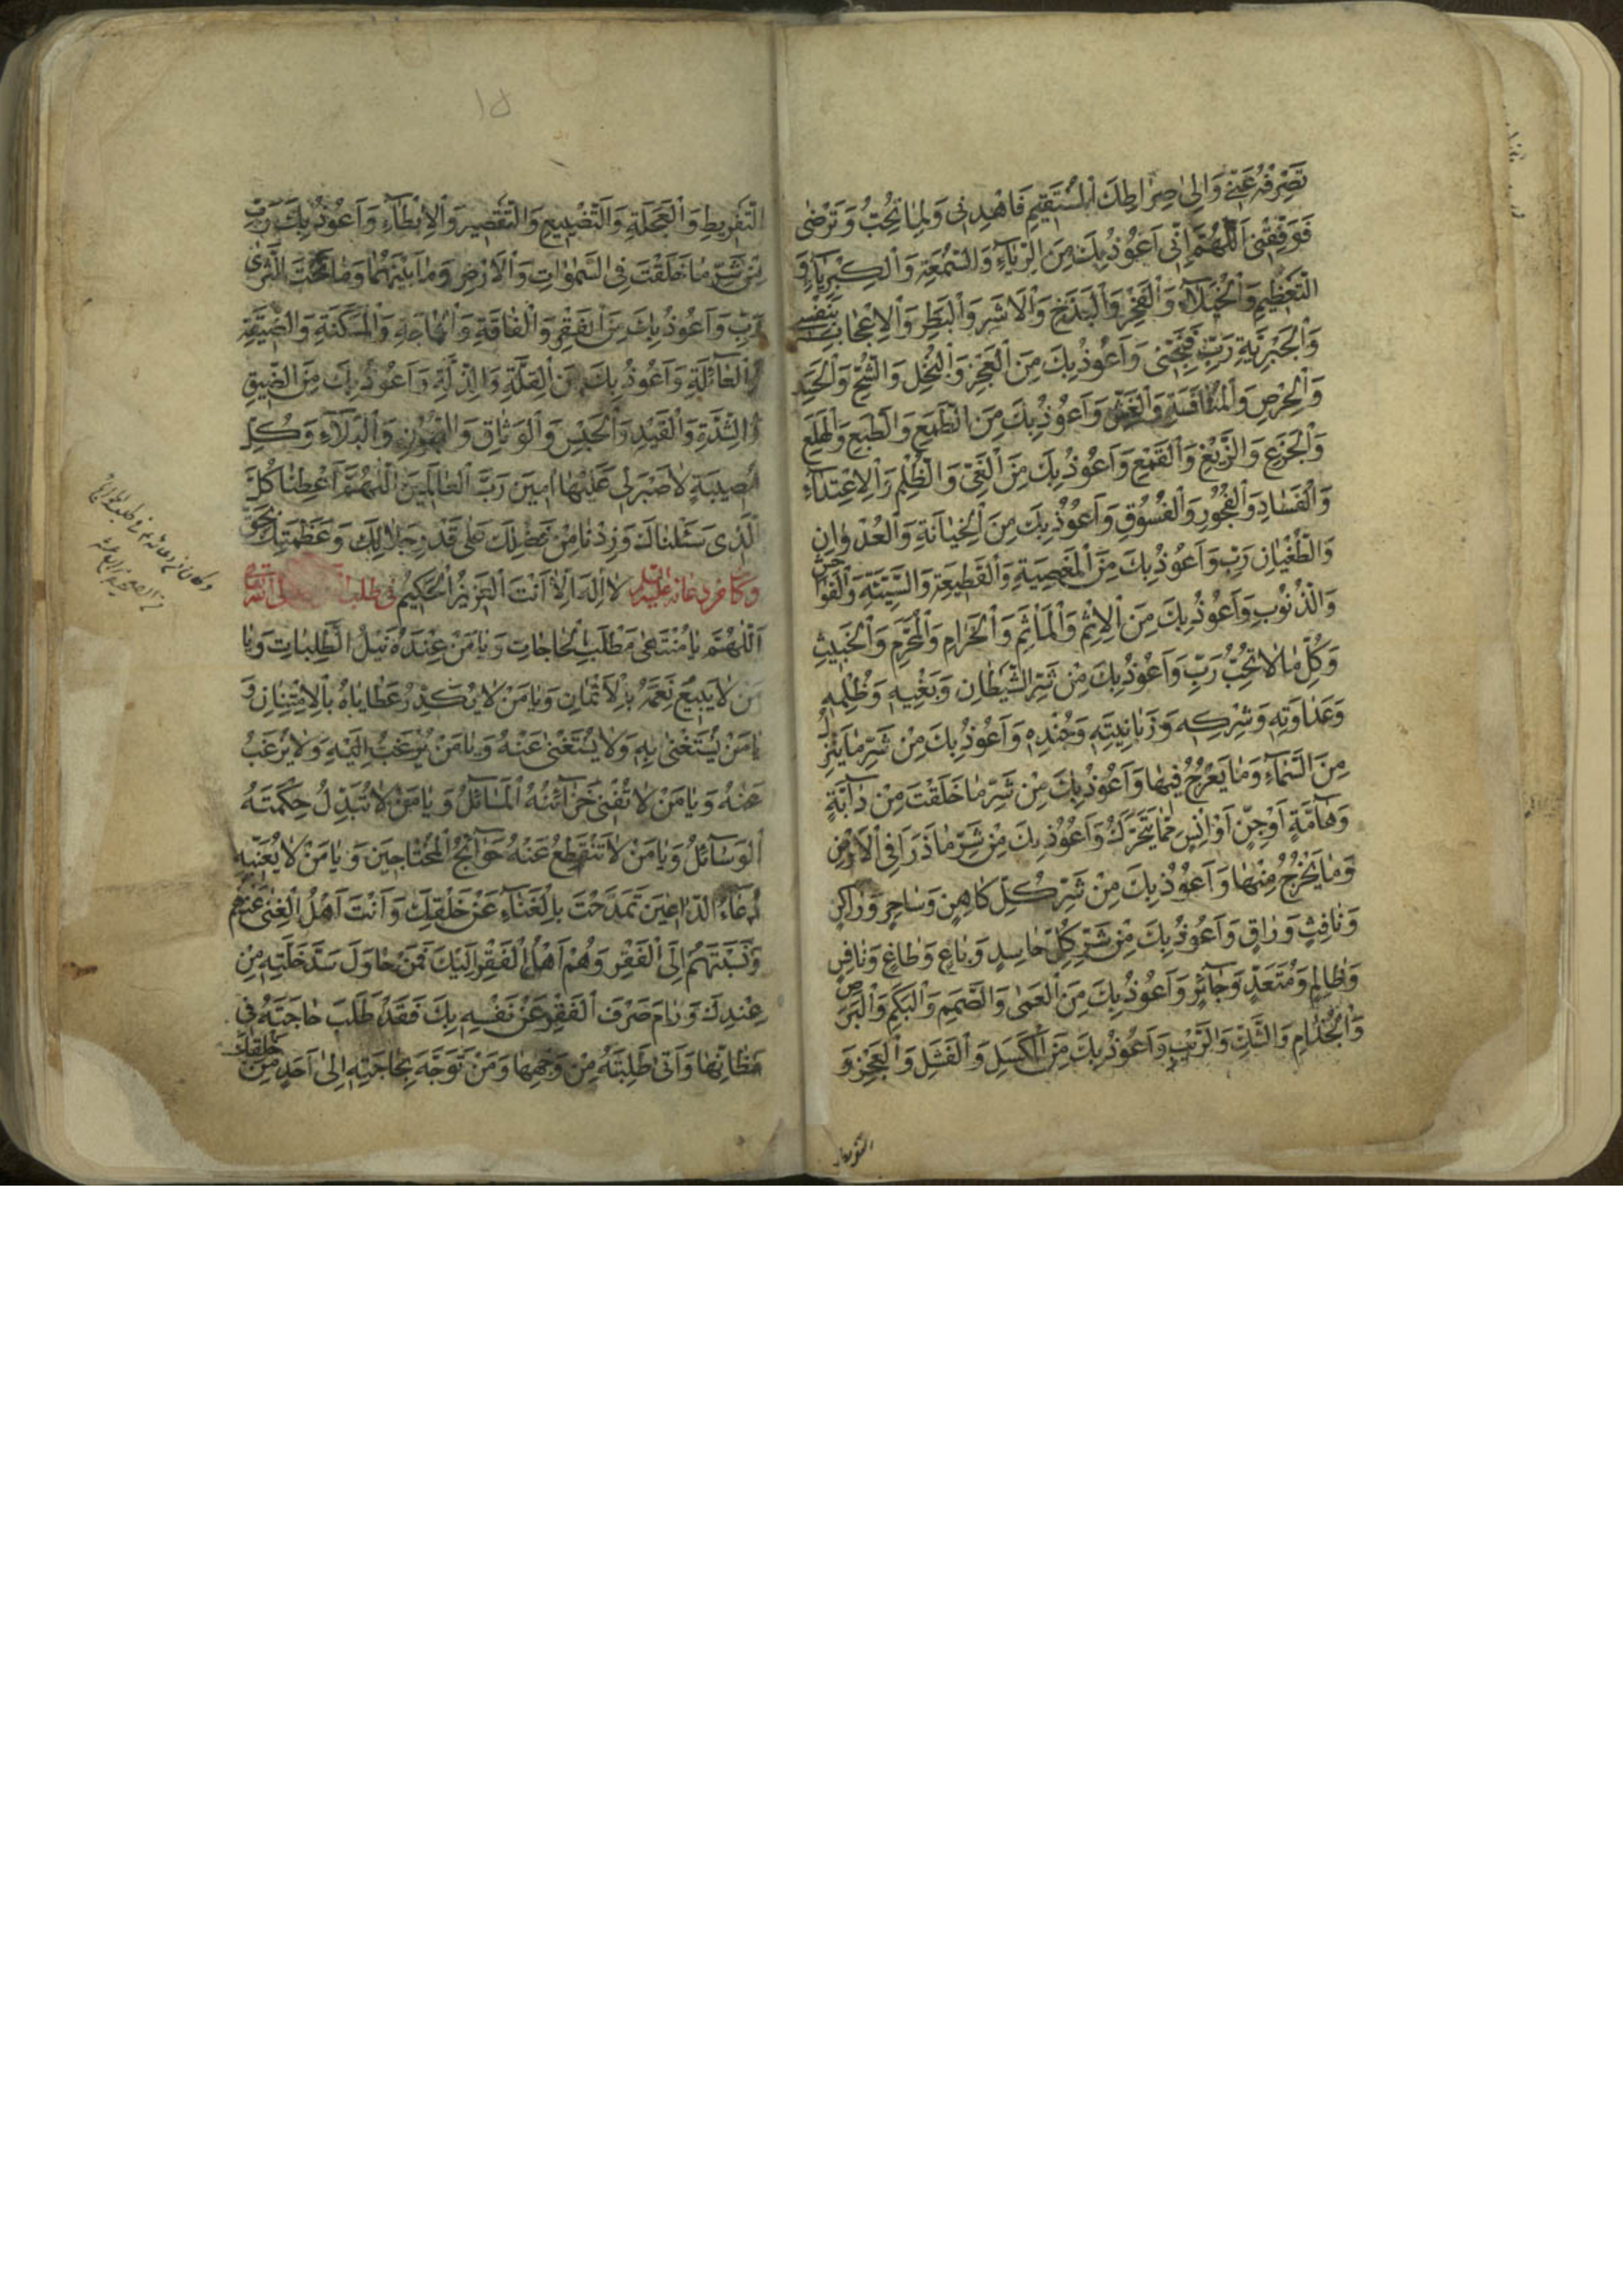 تَصْرِفُهُ عَنّي وَاِلىٰ صِرٰاطِكَ الْمُسْتَقيمِ فَاهْدِنى وَلِمٰا تُحِبُّ وَتَرْضىٰ
فَوَفِّقْنى اَللّٰهُمَّ اِنّى اَعُوذُ بِكَ مِنَ الرِّيٰآءِ وَالسُّمْعَةِ وَالْكِبْرِيٰآءِ وَ
التَّعْظيمِ وَالْخُيَلآءِ وَالْفَخْرِ وَالْبَذَخِ وَالْاَشَرِ وَالْبَطَرِ وَالْاِعْجٰابِ بِنَفْسى
وَالْجَبْرِيَّةِ رَبِّ فَنَجِّنى وَاَعُوذُ بِكَ مِنَ الْعَجْزِ وَالْبُخْلِ وَالشُّحِّ وَالْحَسَدِ
وَالْحِرْصِ وَالْمُنٰافَسَةِ وَالْغِشِّ وَاَعُوذُ بِكَ مِنَ الطَّمَعِ وَالطَّبَعِ وَالْهَلَعِ
وَالْجَزَعِ وَالزَّيْغِ وَالْقَمْعِ وَاَعُوذُ بِكَ مِنَ الْبَغْىِ وَالظُّلْمِ وَالْاِعْتِدٰآءِ
وَالْفَسٰادِ وَالْفُجُورِ وَالْفُسُوقِ وَاَعُوذُ بِكَ مِنَ الْخِيٰانَةِ وَالْعُدْوٰانِ
وَالطُّغْيٰانِ رَبِّ وَاَعُوذُ بِكَ مِنَ الْمَعْصِيَةِ وَالْقَطيعَةِ وَالسَّيِّئَةِ وَالْفَوٰاحِشِ
وَالذُّنُوبِ وَاَعُوذُ بِكَ مِنَ الْاِثْمِ وَالْمَأْثَمِ وَالْحَرٰامِ وَالْمُحَرَّمِ وَالْخَبيثِ
وَكُلِّ مٰا لٰا تُحِبُّ رَبِّ وَاَعُوذُ بِكَ مِنْ شَرِّ الشَّيْطٰانِ وَبَغْيِهِ وَظُلْمِهِ
وَعَدٰاوَتِهِ وَشِرْكِهِ وَزَبٰانِيَتِهِ وَجُنْدِهِ وَاَعُوذُ بِكَ مِنْ شَرِّ مٰا يَنْزِلُ
مِنَ السَّمٰآءِ وَمٰا يَعْرُجُ فيهٰا وَاَعُوذُ بِكَ مِنْ شَرِّ مٰا خَلَقْتَ مِنْ دٰآبَّةٍ
وَهٰآمَّةٍ اَوْ جِنٍّ اَوْ اِنْسٍ مِمّٰا يَتَحَرَّكُ وَاَعُوذُ بِكَ مِنْ شَرِّ مٰا ذَرَاَ فِى الْاَرْضِ
وَمٰا يَخْرُجُ مِنْهٰا وَاَعُوذُ بِكَ مِنْ شَرِّ كُلِّ كٰاهِنٍ وَسٰاحِرٍ وَرٰاكِنٍ
وَنٰافِثٍ وَرٰاقٍ وَاَعُوذُ بِكَ مِنْ شَرِّ كُلِّ حٰاسِدٍ وَبٰاغٍ وَطٰاغٍ وَنٰافِسٍ
وَظٰالِمٍ وَمُتَعَدٍّ وَجٰآئِرٍ وَاَعُوذُ بِكَ مِنَ الْعَمىٰ وَالصَّمَمِ وَالْبَكَمِ وَالْبَرَصِ
وَالْجُذٰامِ وَالشَّكِّ وَالرَّيْبِ وَاَعُوذُ بِكَ مِنَ الْكَسَلِ وَالْفَشَلِ وَالْعَجْزِ وَ
التَّفْريطِ وَالْعَجَلَةِ وَالتَّضْييعِ وَالتَّقْصيرِ وَالْاِبْطٰآءِ وَاَعُوذُ بِكَ رَبِّ
مِنْ شَرِّ مٰا خَلَقْتَ فِى السَّمٰوٰاتِ وَالْاَرْضِ وَمٰا بَيْنَهُمٰا وَمٰا تَحْتَ الثَّرىٰ
رَبِّ وَاَعُوذُ بِكَ مِنَ الْفَقْرِ وَالْفٰاقَةِ وَالْحٰاجَةِ وَالْمَسْكَنَةِ وَالضّيقَةِ
وَالْعٰآئِلَةِ وَاَعُوذُ بِكَ مِنَ الْقِلَّةِ وَالذِّلَّةِ وَاَعُوذُ بِكَ مِنَ الضّيقِ
وَالشِّدَّةِ وَالْقَيْدِ وَالْحَبْسِ وَالْوَثٰاقِ وَالسُّجُونِ وَالْبَلٰآءِ وَكُلِّ
مُصيبَةٍ لٰا صَبْرَ لى عَلَيْهٰا اٰمينَ رَبَّ الْعٰالَمينَ اَللّٰهُمَّ اَعْطِنٰا كُلَّ
الَّذى سَئَلْنٰاكَ وَزِدْنٰا مِنْ فَضْلِكَ عَلىٰ قَدْرِ جَلٰالِكَ وَعَظَمَتِكَ بِحَقِّ
لٰا اِلٰهَ اِلّٰا اَنْتَ الْعَزيزُ الْحَكيمُ وكان من دعائه عليه السلام فى طلب
اَللّٰهُمَّ يٰا مُنْتَهىٰ مَطْلَبِ الْحٰاجٰاتِ وَيٰا مَنْ عِنْدَهُ نَيْلُ الطَّلِبٰاتِ وَيٰا
مَنْ لٰا يَبيعُ نِعَمَهُ بِالْاَثْمٰانِ وَيٰا مَنْ لٰا يُكَدِّرُ عَطٰايٰاهُ بِالْاِمْتِنٰانِ وَ
يٰا مَنْ يُسْتَغْنىٰ بِهِ وَلٰا يُسْتَغْنىٰ عَنْهُ وَيٰا مَنْ يُرْغَبُ اِلَيْهِ وَلٰا يُرْغَبُ
عَنْهُ وَيٰا مَنْ لٰا تُفْنى خَزٰآئِنَهُ الْمَسٰآئِلُ وَيٰا مَنْ لٰا تُبَدِّلُ حِكْمَتَهُ
الْوَسٰآئِلُ وَيٰا مَنْ لٰا تَنْقَطِعُ عَنْهُ حَوٰآئِجُ الْمُحْتٰاجينَ وَيٰا مَنْ لٰا يُعَنّيهِ
دُعٰآءُ الدّٰاعينَ تَمَدَّحْتَ بِالْغَنٰآءِ عَنْ خَلْقِكَ وَاَنْتَ اَهْلُ الْغِنىٰ عَنْهُمْ
وَنَسَبْتَهُمْ اِلَى الْفَقْرِ وَهُمْ اَهْلُ الْفَقْرِ اِلَيْكَ فَمَنْ حٰاوَلَ سَدَّ خَلَّتِهِ مِنْ
عِنْدِكَ وَرٰامَ صَرْفَ الْفَقْرِ عَنْ نَفْسِهِ بِكَ فَقَدْ طَلَبَ حٰاجَتَهُ فى
مَظٰانِّهٰا وَاَتىٰ طَلِبَتَهُ مِنْ وَجْهِهٰا وَمَنْ تَوَجَّهَ بِحٰاجَتِهِ اِلىٰ اَحَدٍ مِنْ خَلْقِكَ